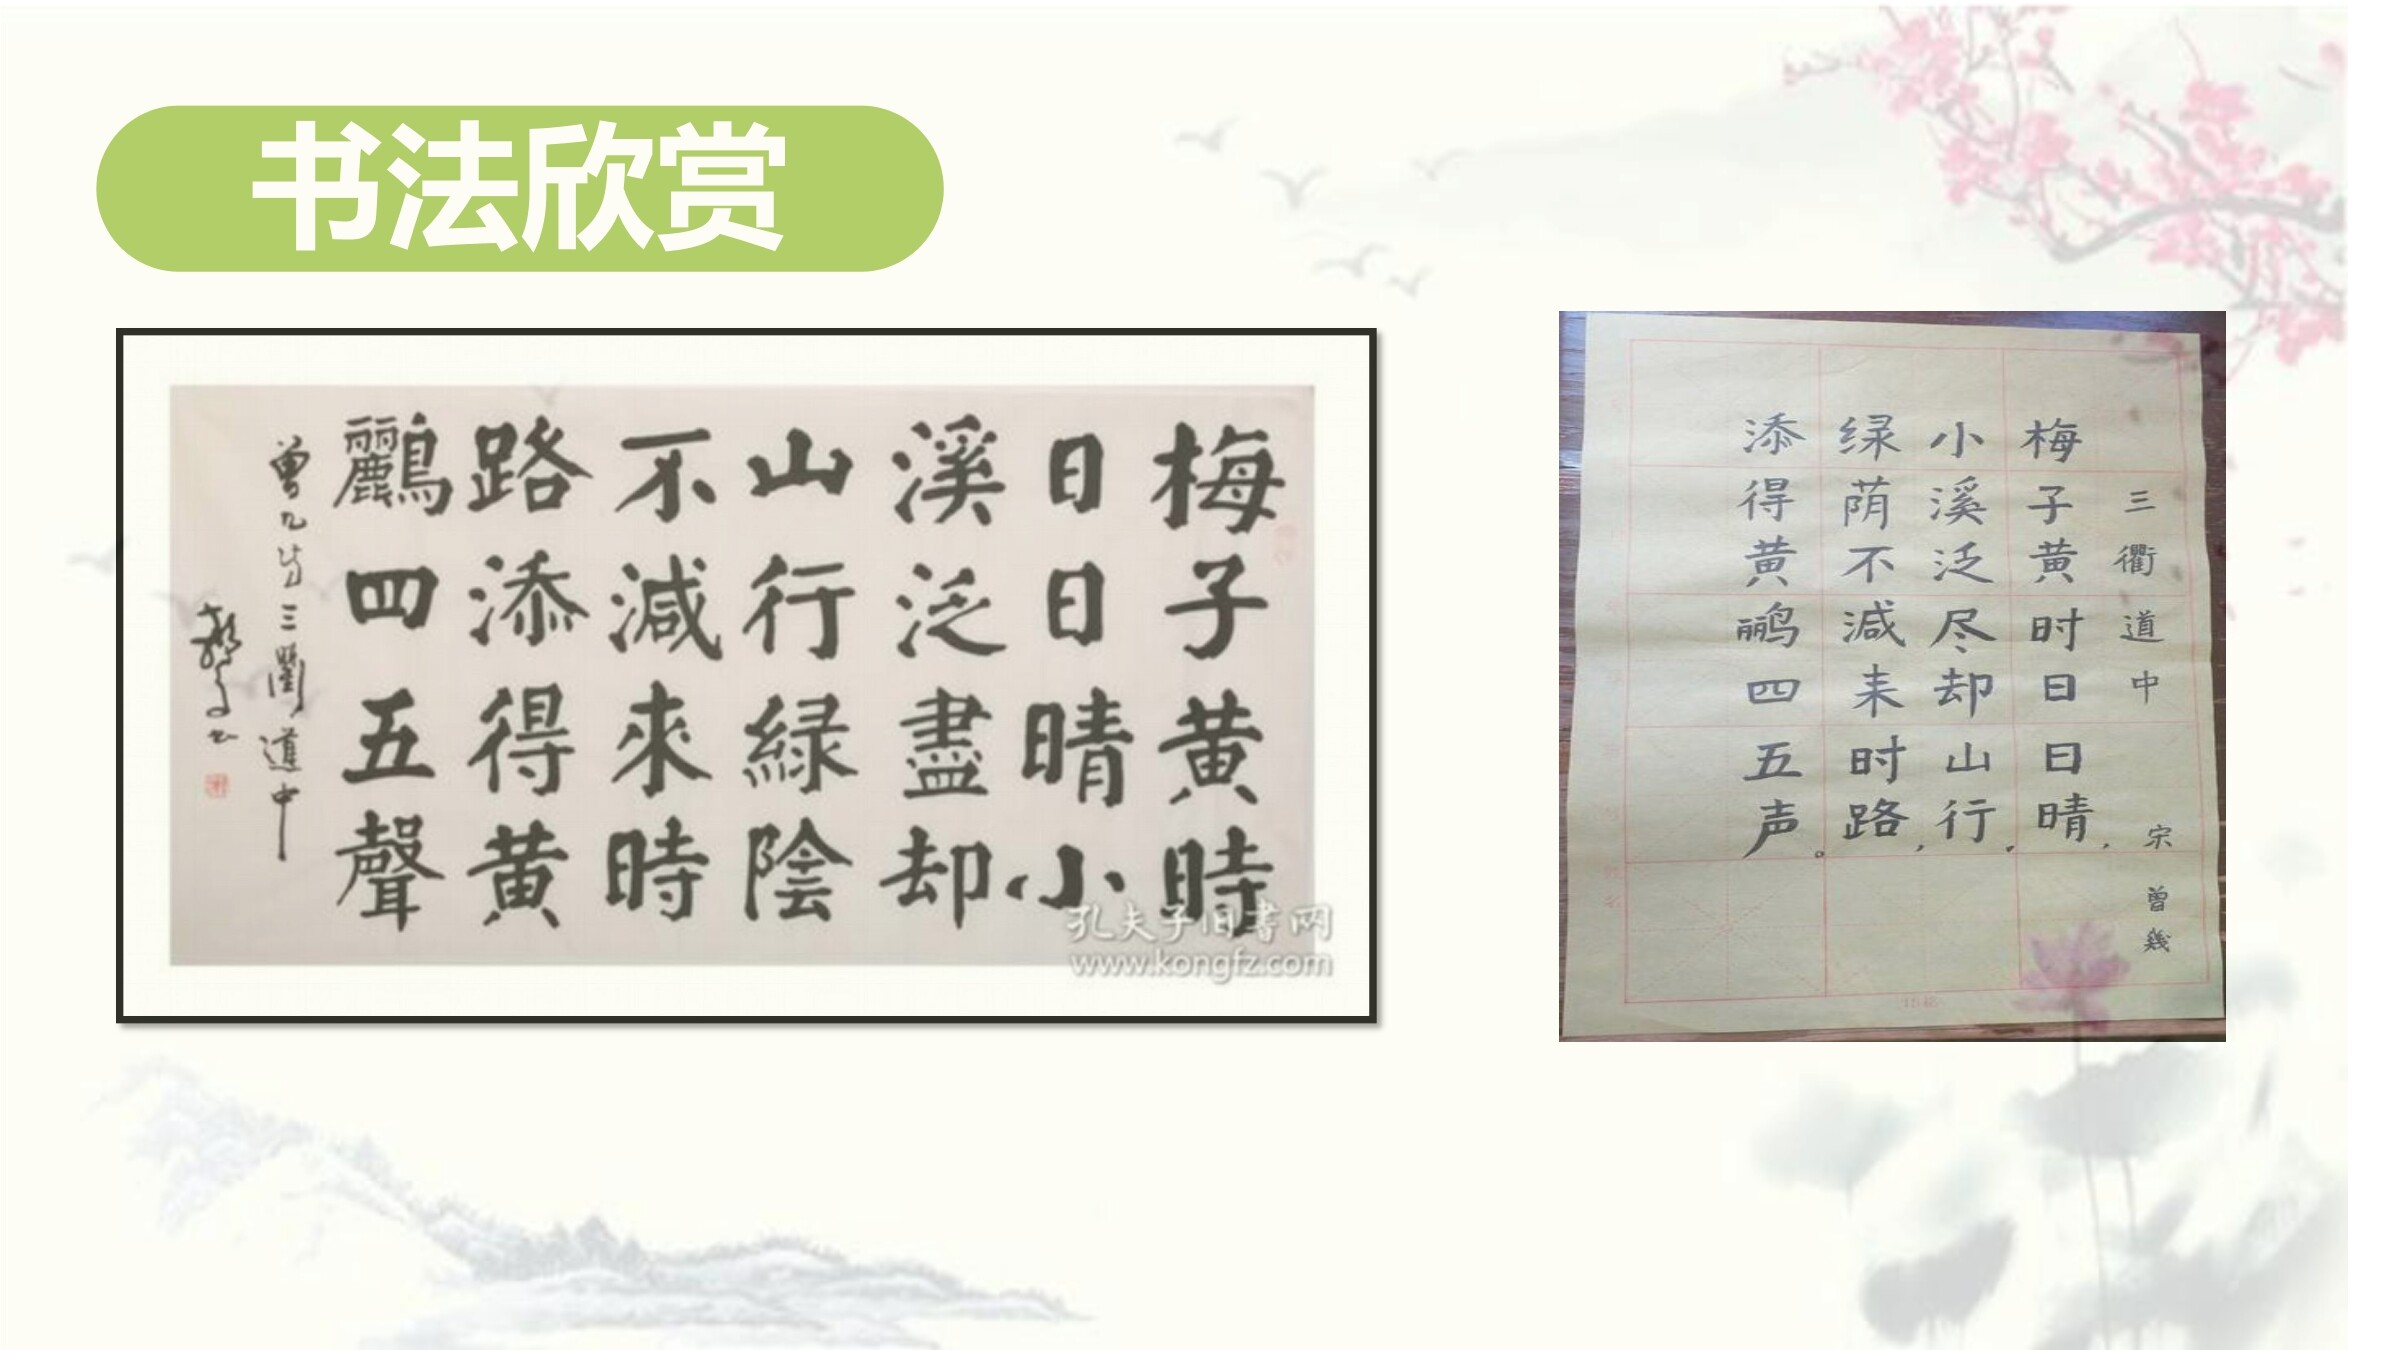 书法欣赏
梅子黄時
日日晴小
溪泛盡却
山行緑陰
不減來時
路添得黄
鸝四五聲
曾几 三衢道中
孔夫子旧书网
www.kongfz.com
三衢道中
宋 曾幾
梅子黄时日日晴，
小溪泛尽却山行，
绿荫不减来时路，
添得黄鹂四五声。